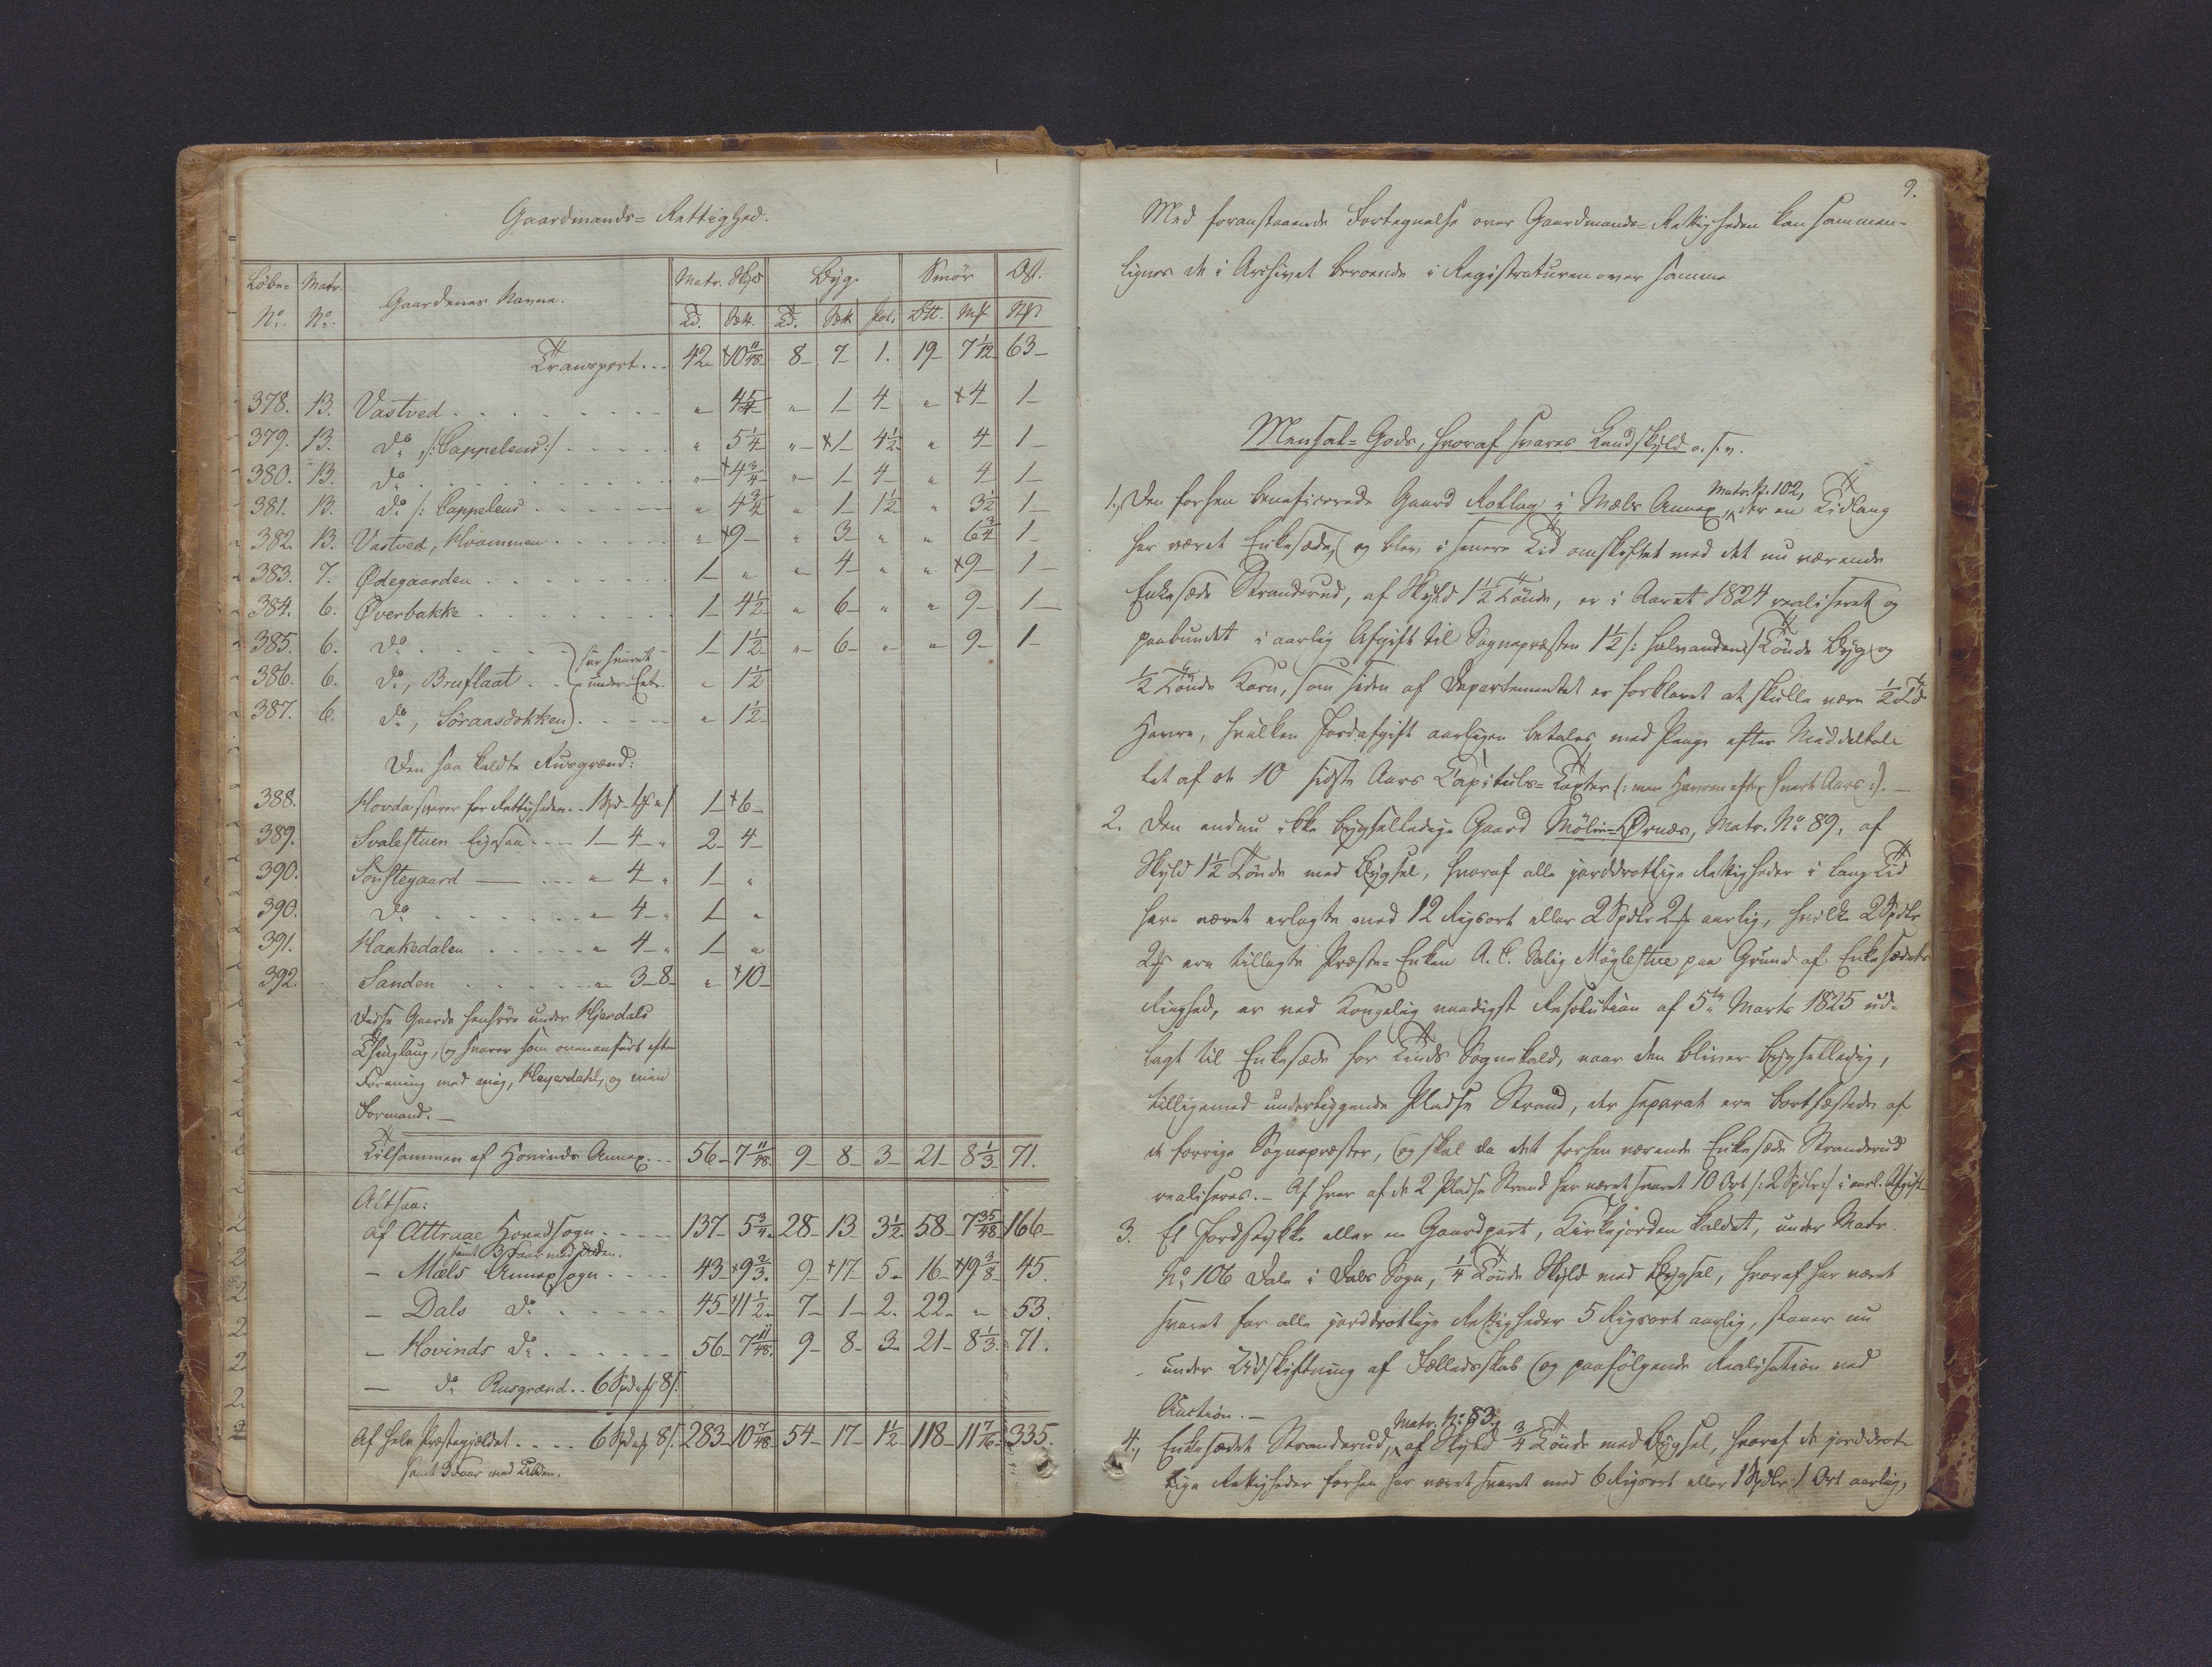 Gaardmands=Rettighed.
Løbe= Matr. Gaardenes Navne. Matr. Skyld Byg. Smør Ost.
No. No. Td. Sett. Td. Sett. Pot. Btt. Mk. Stk.
Transport... 42- +10 11/48 8- 7- 1. 19- 7 1/12 63-
378. 13. Vastved . . . . „ 4 5/4 „ 1- 4- „ +4- 1-
379. 13. Do /:Cappelens:/ . . . „ 5 1/4 „ +1- 4 1/2 „ 4- 1-
380. 13. Do . . . . „ +4 3/4 „ 1- 4- „ 4- 1-
381. 13. Do /: Cappelens . . . „ 4 3/4 „ 1- 1 1/2 „ 3 1/2 1-
382. 13. Vastved, Kvammen . . . „ +9- „ 3- „ „ 6 3/4 1-
383. 7. Ødegaarden . . . 1- „ „ 4- „ „ +9- 1-
384. 6. Øverbakke . . . 1- 4 1/2 „ 6- „ „ 9- 1-
385. 6. Do . . . 1- 1 1/2 „ 6- „ „ 9- 1-
386. 6. Do, Brusflaat . . „ 1 1/2
387. 6. Do, Søraasdokken . . . „ 1 1/2
Den saa kaldte Rusgrænd:
388. Hovda svarer for Rettigheden . . 1 Spd- 4 1- +6-
389. Svalestuen ligesaa . . . 1- 4- „ 2- 4-
390. Søustegaard — . . . „ 4- „ 1- „
390. Do . . . „ 4- „ 1- „
391. Haakedalen . . . „ 4- „ 1- „
392. Sanden . . . „ 3-8- „ +10-
Disse Gaarde henhøre under Hjerdals
Thinglaug, og svarer som ovenanført efter
Forening med mig, Heyerdahl, og min
Formand.-
Tilsammen af Hovinds Annex . . . 56- 7 11/48 9- 8- 3- 21- 8 1/3 71.
Altsaa:
Af Attraae Hovedsogn . . . 137- 5 3/4 28- 13- 3 1/2 58- 7 35/48 166-
samt 3 Faar med Ulden.
- Mæls Annexsogn . . . 43- +9 2/3 9- +17- 5- 16- +19 3/8 45.
- Dals Do . . . 45- +11 1/2 7- 1- 2. 22- „ 53.
- Hovinds Do . . . 56- 7 11/48 9- 8- 3- 21- 8 1/3 71.
- Do Rusgrænd . . 6 Spd 8 s.
Af hele Præstegjældet . . . 6 Spd 8 s. 283- 10 7/48 54- 17- 1 1/2 118- 11 7/16 335.
samt 3 Faar med Ulden.
9.
Med foranstaaende Fortegnelse over Gaardmands=Rettigheden kan sammen-
lignes de i Archivet beroende i Registraturen over samme
Mensal=Gods, hvoraf svares Landskyld o. s. v.
Matr. N. 102,
1., Den forhen beneficerede Gaard Rollag i Mæls Annex, der en Tidlang
har været Enkesæde, og blev i senere Tid omskiftet med det nu værende
Enkesæde Stranderud, af Skyld 1 1/2 Tønde, er i Aaret 1824 realiseret og
paabundet i aarlig Afgift til Sognepræsten 1 1/2 /: halvanden :/ Tønde Byg og
1/2 Tønde Korn, som siden af Departementet er forklaret at skulle være 1/2 Td
Havre, hvilken Jordafgift aarligen betales med Penge efter Middeltal-
let af de 10 sidste Aars Capituls=Taxter (: men Havren efter hvert Aars :).-
2. Den endnu ikke bygselledige Gaard Mølir=Ørnæs, Matr. No 89, af
Skyld 1 1/2 Tønde med Bygsel, hvoraf alle jorddrotlige Rettigheder i lang Tid
have været erlagte med 12 Rigsort eller 2 Spdlr 2 aarlig, hvilke 2 Spdlr
2 ere tillagte Præste=Enken A. C. Salig Møglestue paa Grund af Enkesædets
Ringhed, er ved Kongelig naadigst Resolution af 5te Marts 1825 ud-
lagt til Enkesæde for Tinds Sognekald, naar den bliver bygselledig,
tilligemed underliggende Pladse Strand, der separat ere bortfæstede af
de forrige Sognepræster, og skal da det forhen værende Enkesæde Stranderud
realiseres.- Af hver af de 2 Pladse Strand har været svaret 10 Ort /: 2 Spdlr :/ i aarl. Afgift
3. Et Jordstykke eller en Gaardpart, Kirkejorden kaldet, under Matr.
No 106 Dale i Dals Sogn, 1/4 Tønde Skyld med Bygsel, hvoraf har været
svaret for alle jorddrotlige Rettigheder 5 Rigsort aarlig, staaer nu
under Udskiftning af Fælledsskab og paafølgende Realisation ved
Auction.-
Matr. No 83.,
4., Enkesædet Stranderud, af Skyld 3/4 Tønde med Bygsel, hvoraf de jorddrot-
lige Rettigheder forhen har været svaret med 6 Rigsort eller 1 Spdlr 1 Ort aarlig,